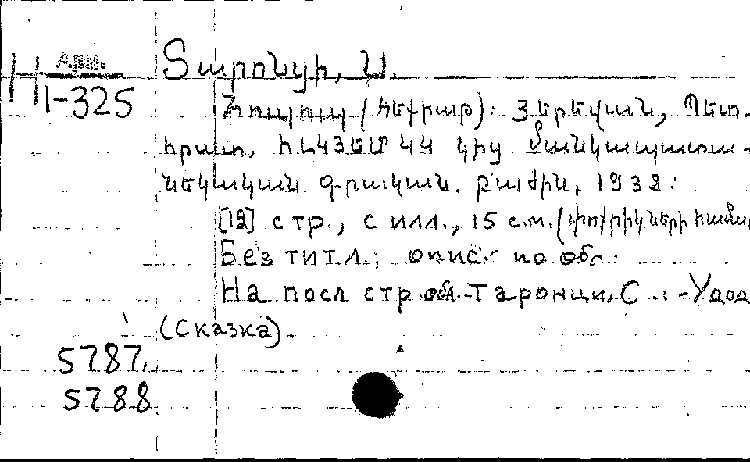 Арм.
Н1-325
Տարոնցի, Ս.
Հոպոպ (հեքիաթ): Յերեվան, Պետ.
հրատ, ՀԼԿՅԵՄ ԿԿ կից մանկապատա-
նեկական գրական. բաժին, 1932:
[12] стр., с илл., 15 см. (փոքրիկների համար
Без титл.; опис. по обл.
На посл стр обл.-Таронци, С.-Удод
(сказка).
5787.
5788